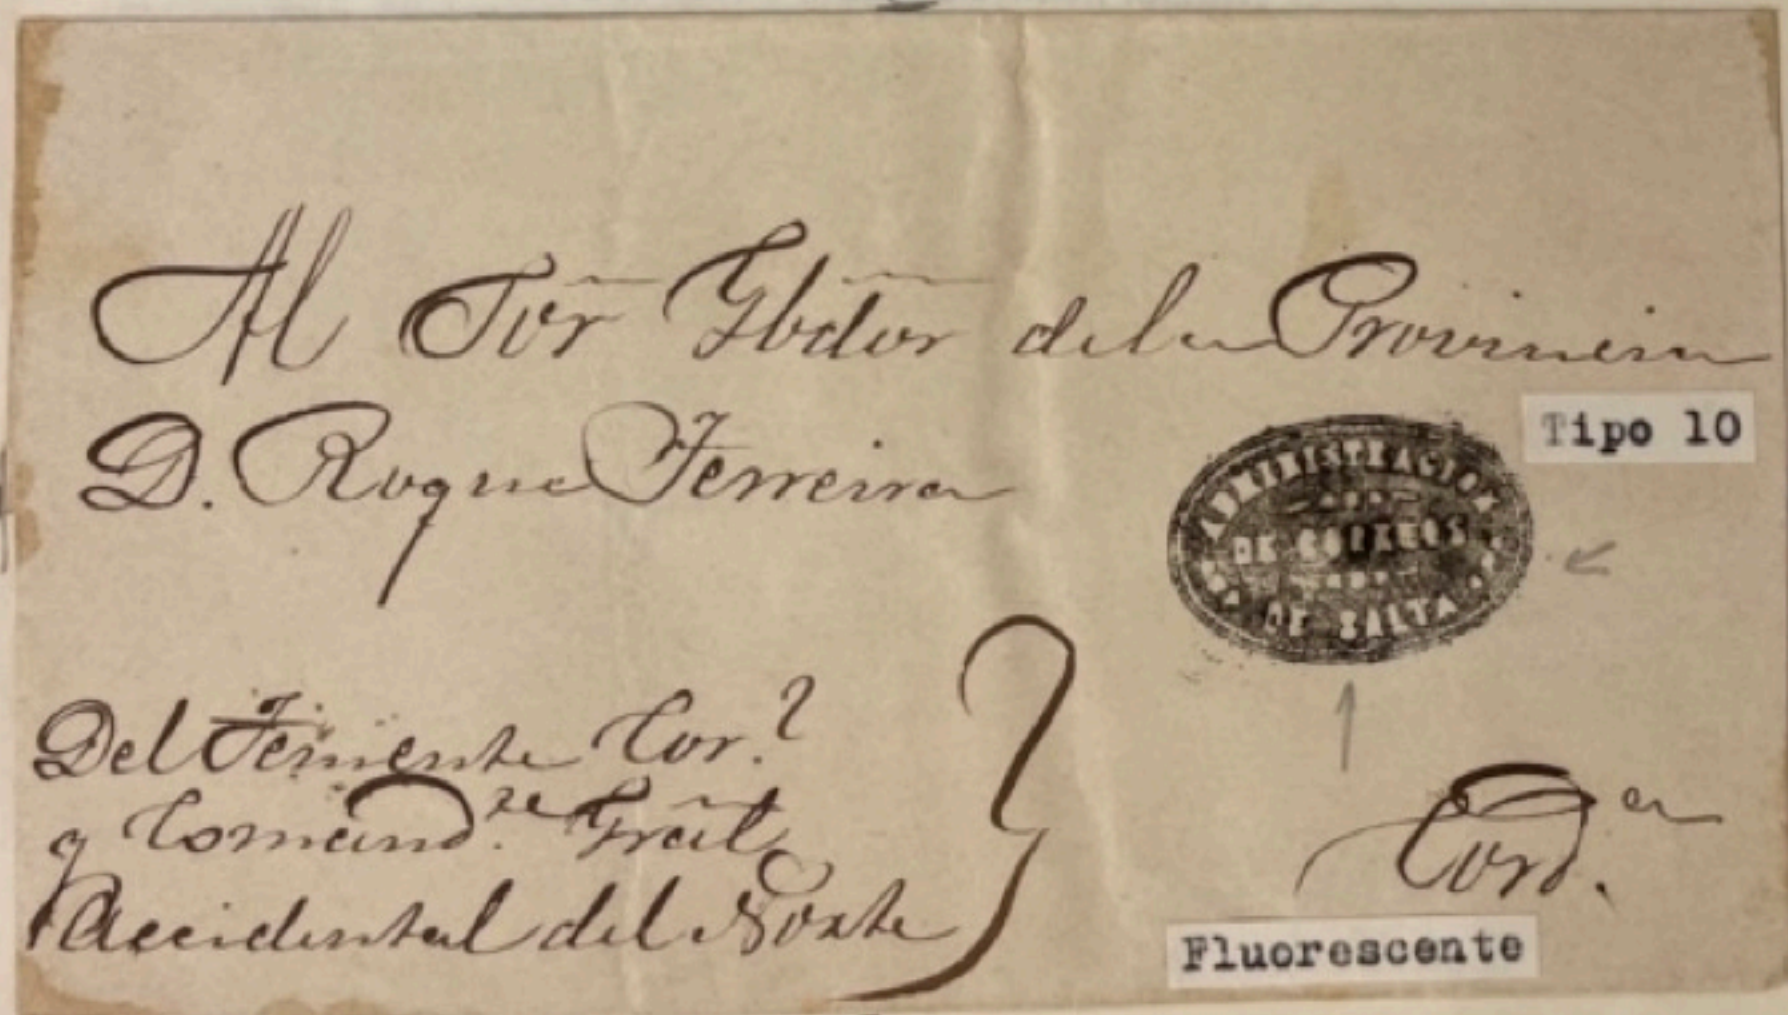 Al Sor̃ Gbdor̃ de la Provincia
D. Roque Ferreira
Tipo 10
ADMINISTRACION
DE CORREOS
DE SALTA
Del Teniente Cor.l
y Comand.te Gral̃
Accidental del Norte
Cord.a
Fluorescente